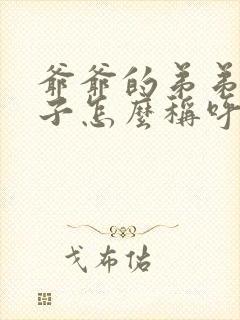 爺爺的弟弟
子怎麼稱呼
戈布佑